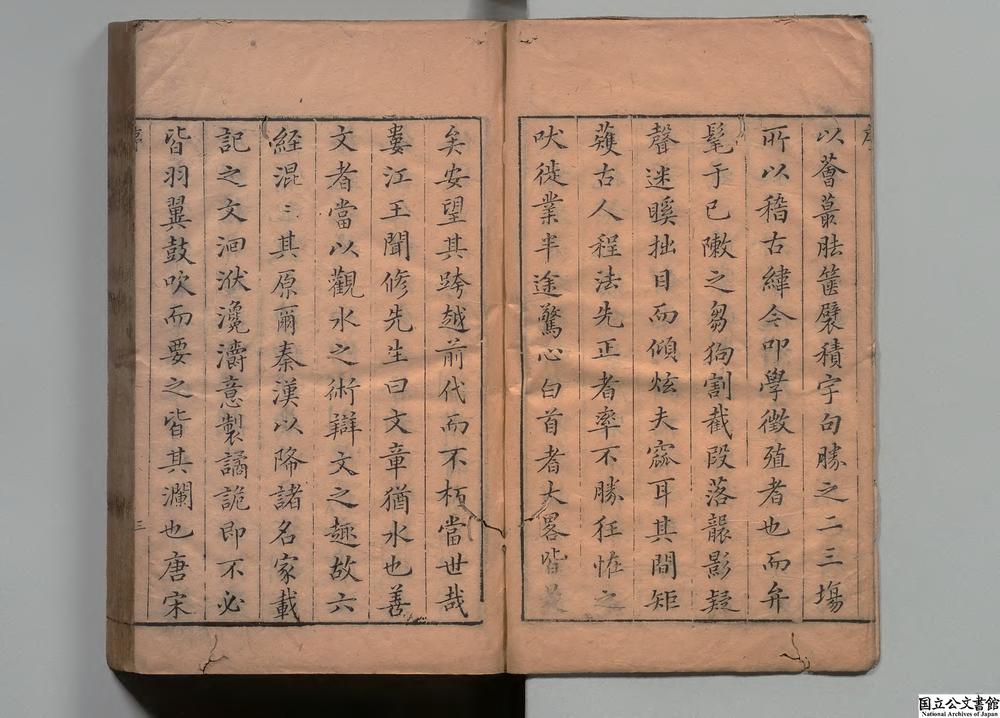 以薈蕞胠篋襞積字句勝之二三塲
所以稽古緯今叩學徵殖者也而弁
髦于已敶之芻狗割截段落龒影疑
聲迷瞍拙目而傾炫夫窾耳其間矩
蒦古人程法先正者率不勝狂怪之
吠徙業半途驚心白首者大畧皆
矣安望其跨越前代而不朽當世哉
婁江王聞修先生曰文章猶水也善
文者當以觀水之術辯文之趣故六
經混〻其原爾秦漢以降諸名家載
記之文洄洑瀺灂意製譎詭即不必
皆羽翼鼓吹而要之皆其瀾也唐宋
序
三
国立公文書館
National Archives of Japan